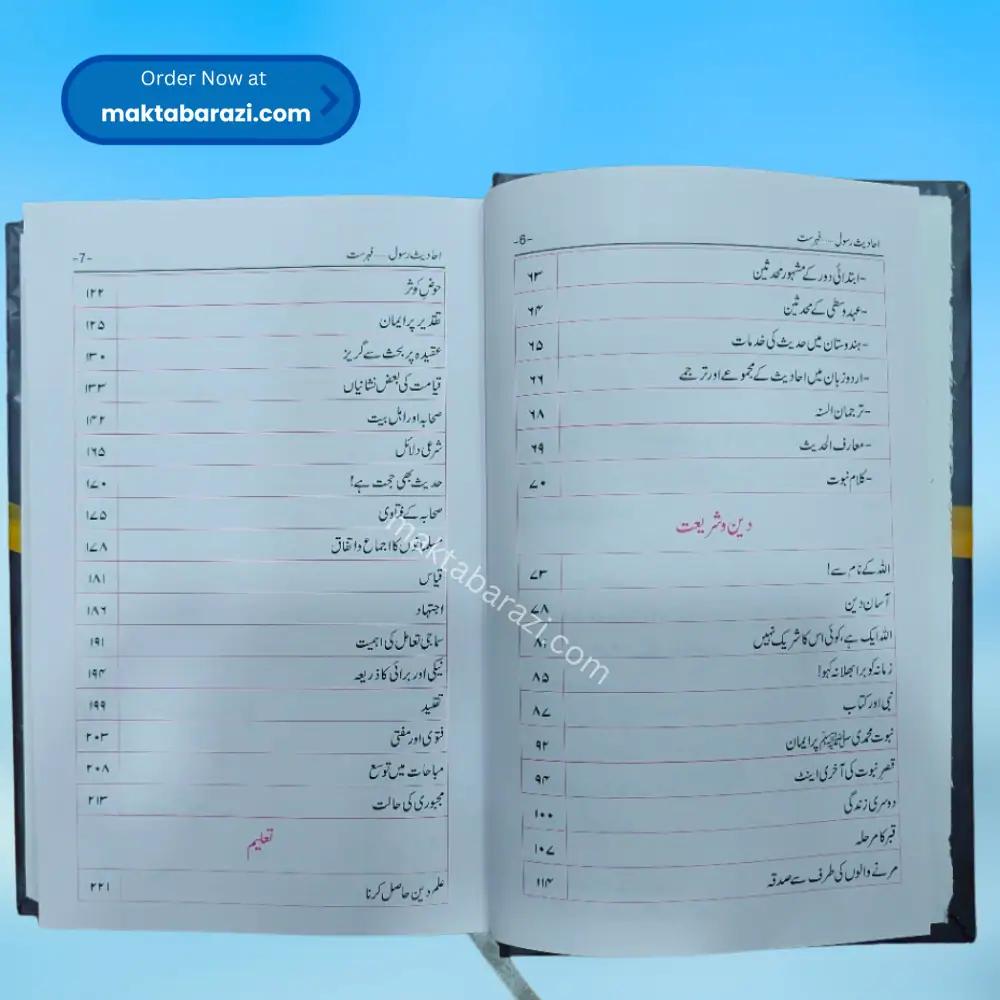 Order Now at
maktabarazi.com
احادیث رسول ..... فہرست -6-
-ابتدائی دور کے مشہور محدثین ۶۳
-عہد وسطیٰ کے محدثین ۶۴
-ہندوستان میں حدیث کی خدمات ۶۵
-اردو زبان میں احادیث کے مجموعے اور ترجمے ۶۶
-ترجمان السنہ ۶۸
-معارف الحدیث ۶۹
-کلام نبوت ۷۰
دین و شریعت
اللہ کے نام سے! ۷۳
آسان دین ۷۸
اللہ ایک ہے، کوئی اس کا شریک نہیں ۸۱
زمانہ کو برا بھلا نہ کہو! ۸۵
نبی اور کتاب ۸۷
نبوت محمدی ﷺ پر ایمان ۹۲
قصر نبوت کی آخری اینٹ ۹۴
دوسری زندگی ۱۰۰
قبر کا مرحلہ ۱۰۷
مرنے والوں کی طرف سے صدقہ ۱۱۴
احادیث رسول ..... فہرست -7-
حوضِ کوثر ۱۲۲
تقدیر پر ایمان ۱۲۵
عقیدہ پر بحث سے گریز ۱۳۰
قیامت کی بعض نشانیاں ۱۳۳
صحابہ اور اہل بیت ۱۴۲
شرعی دلائل ۱۶۵
حدیث بھی حجت ہے! ۱۷۰
صحابہ کے فتاوی ۱۷۵
مسلمانوں کا اجماع و اتفاق ۱۷۸
قیاس ۱۸۱
اجتہاد ۱۸۶
سماجی تعامل کی اہمیت ۱۹۱
نیکی اور برائی کا ذریعہ ۱۹۴
تقلید ۱۹۹
فتوی اور مفتی ۲۰۳
مباحات میں توسع ۲۰۸
مجبوری کی حالت ۲۱۳
تعلیم
علم دین حاصل کرنا ۲۲۱
maktabarazi.com